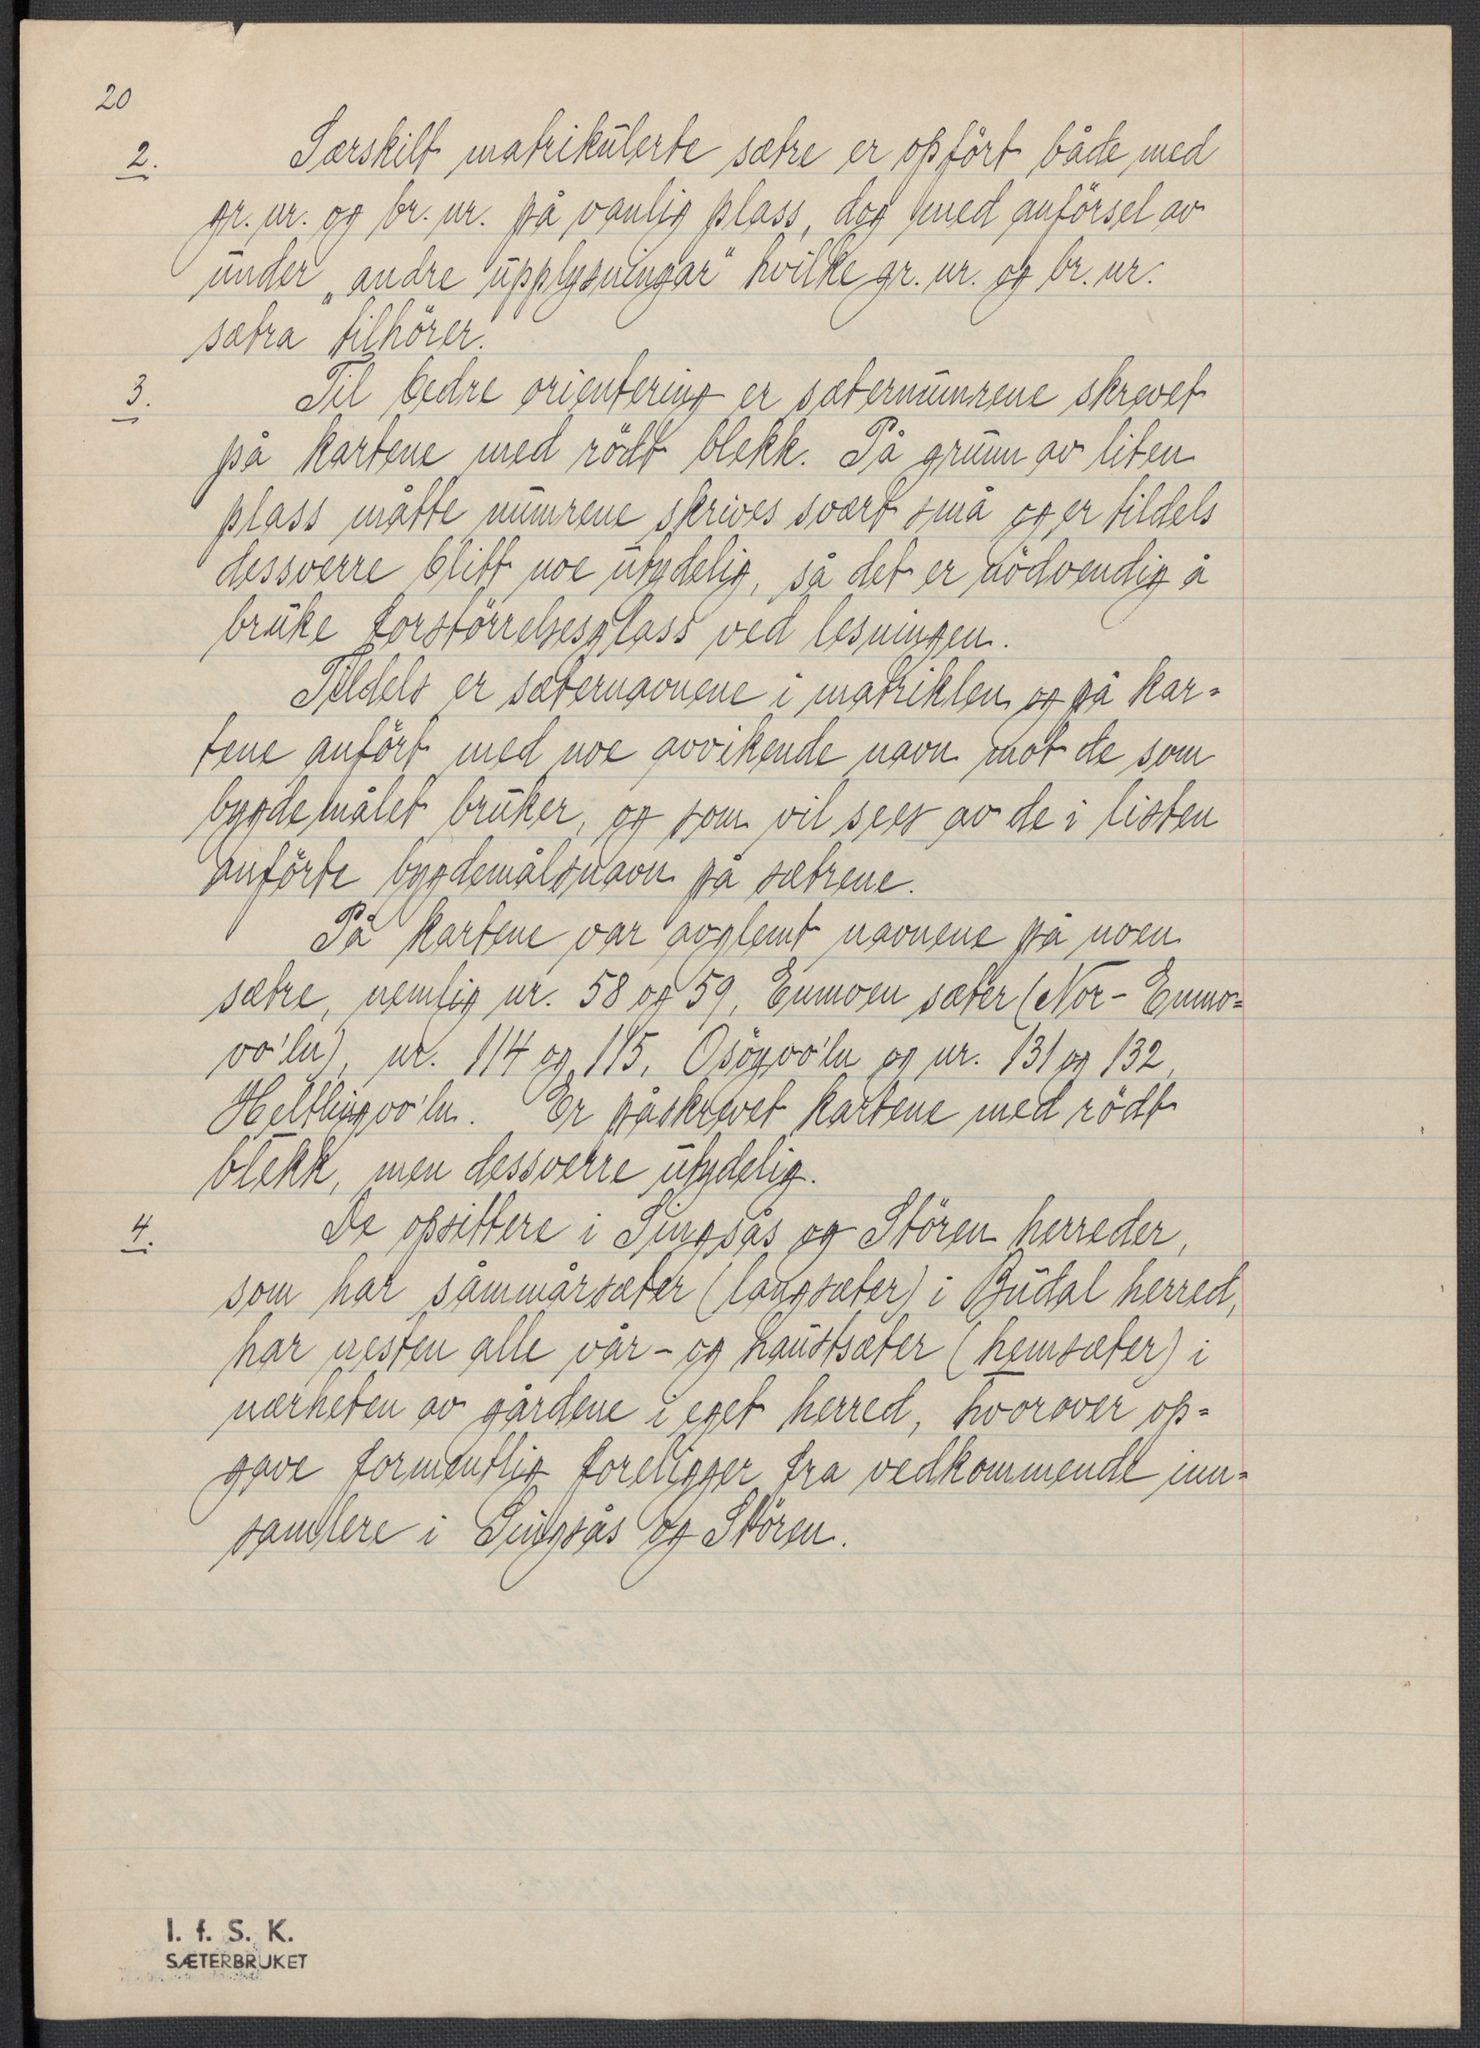 20
2. Særskilt matrikulerte sætre er opfört både med
gr. nr. og br. nr. på vanlig plass, dog med anförsel av
under „andre upplysningar" hvilke gr. nr. og br. nr.
sætra tilhörer.
3. Til bedre orientering er sæternumrene skrevet
på kartene med rödt blekk. På grunn av liten
plass måtte numrene skrives svært små og er tildels
dessverre blitt noe utydelig, så det er nödvendig å
bruke forstörrelsesglass ved lesningen.
Tildels er sæternavnene i matriklen og på kar=
tene anfört med noe avvikende navn mot de som
bygdemålet bruker, og som vil sees av de i listen
anförte bygdemålsnavn på sætrene.
På kartene var avglemt navnene på noen
sætre, nemlig nr. 58 og 59, Enmoen sæter (Nor- Enmo=
vo'ln), nr. 114 og 115, Osögvo'ln og nr. 131 og 132,
Heltlingvo'ln. Er påskrevet kartene med rödt
blekk, men dessverre utydelig.
4. De opsittere i Singsås og Stören herreder,
som har såmmårsæter (langsæter) i Budal herred,
har nesten alle vår- og haustsæter (hemsæter) i
nærheten av gårdene i eget herred, hvorover op=
gave formentlig foreligger fra vedkommende inn=
samlere i Singsås og Stören.
I. f. S. K.
SÆTERBRUKET